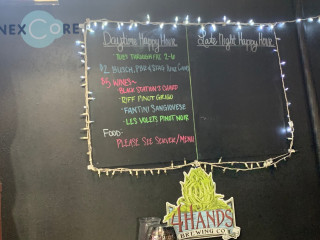 NEXCORE
Daytime Happy Hour
Late Night Happy Hour
Tues Through Fri 2-6
$2 Busch, PBR & Stag
$5 Wines-
Black Station's Chard
Riff Pinot Grigio
- Fantini Sangiovese
- Les Volets Pinot Noir
Food-
Please See Server/Menu
4HANDS
BREWING CO.